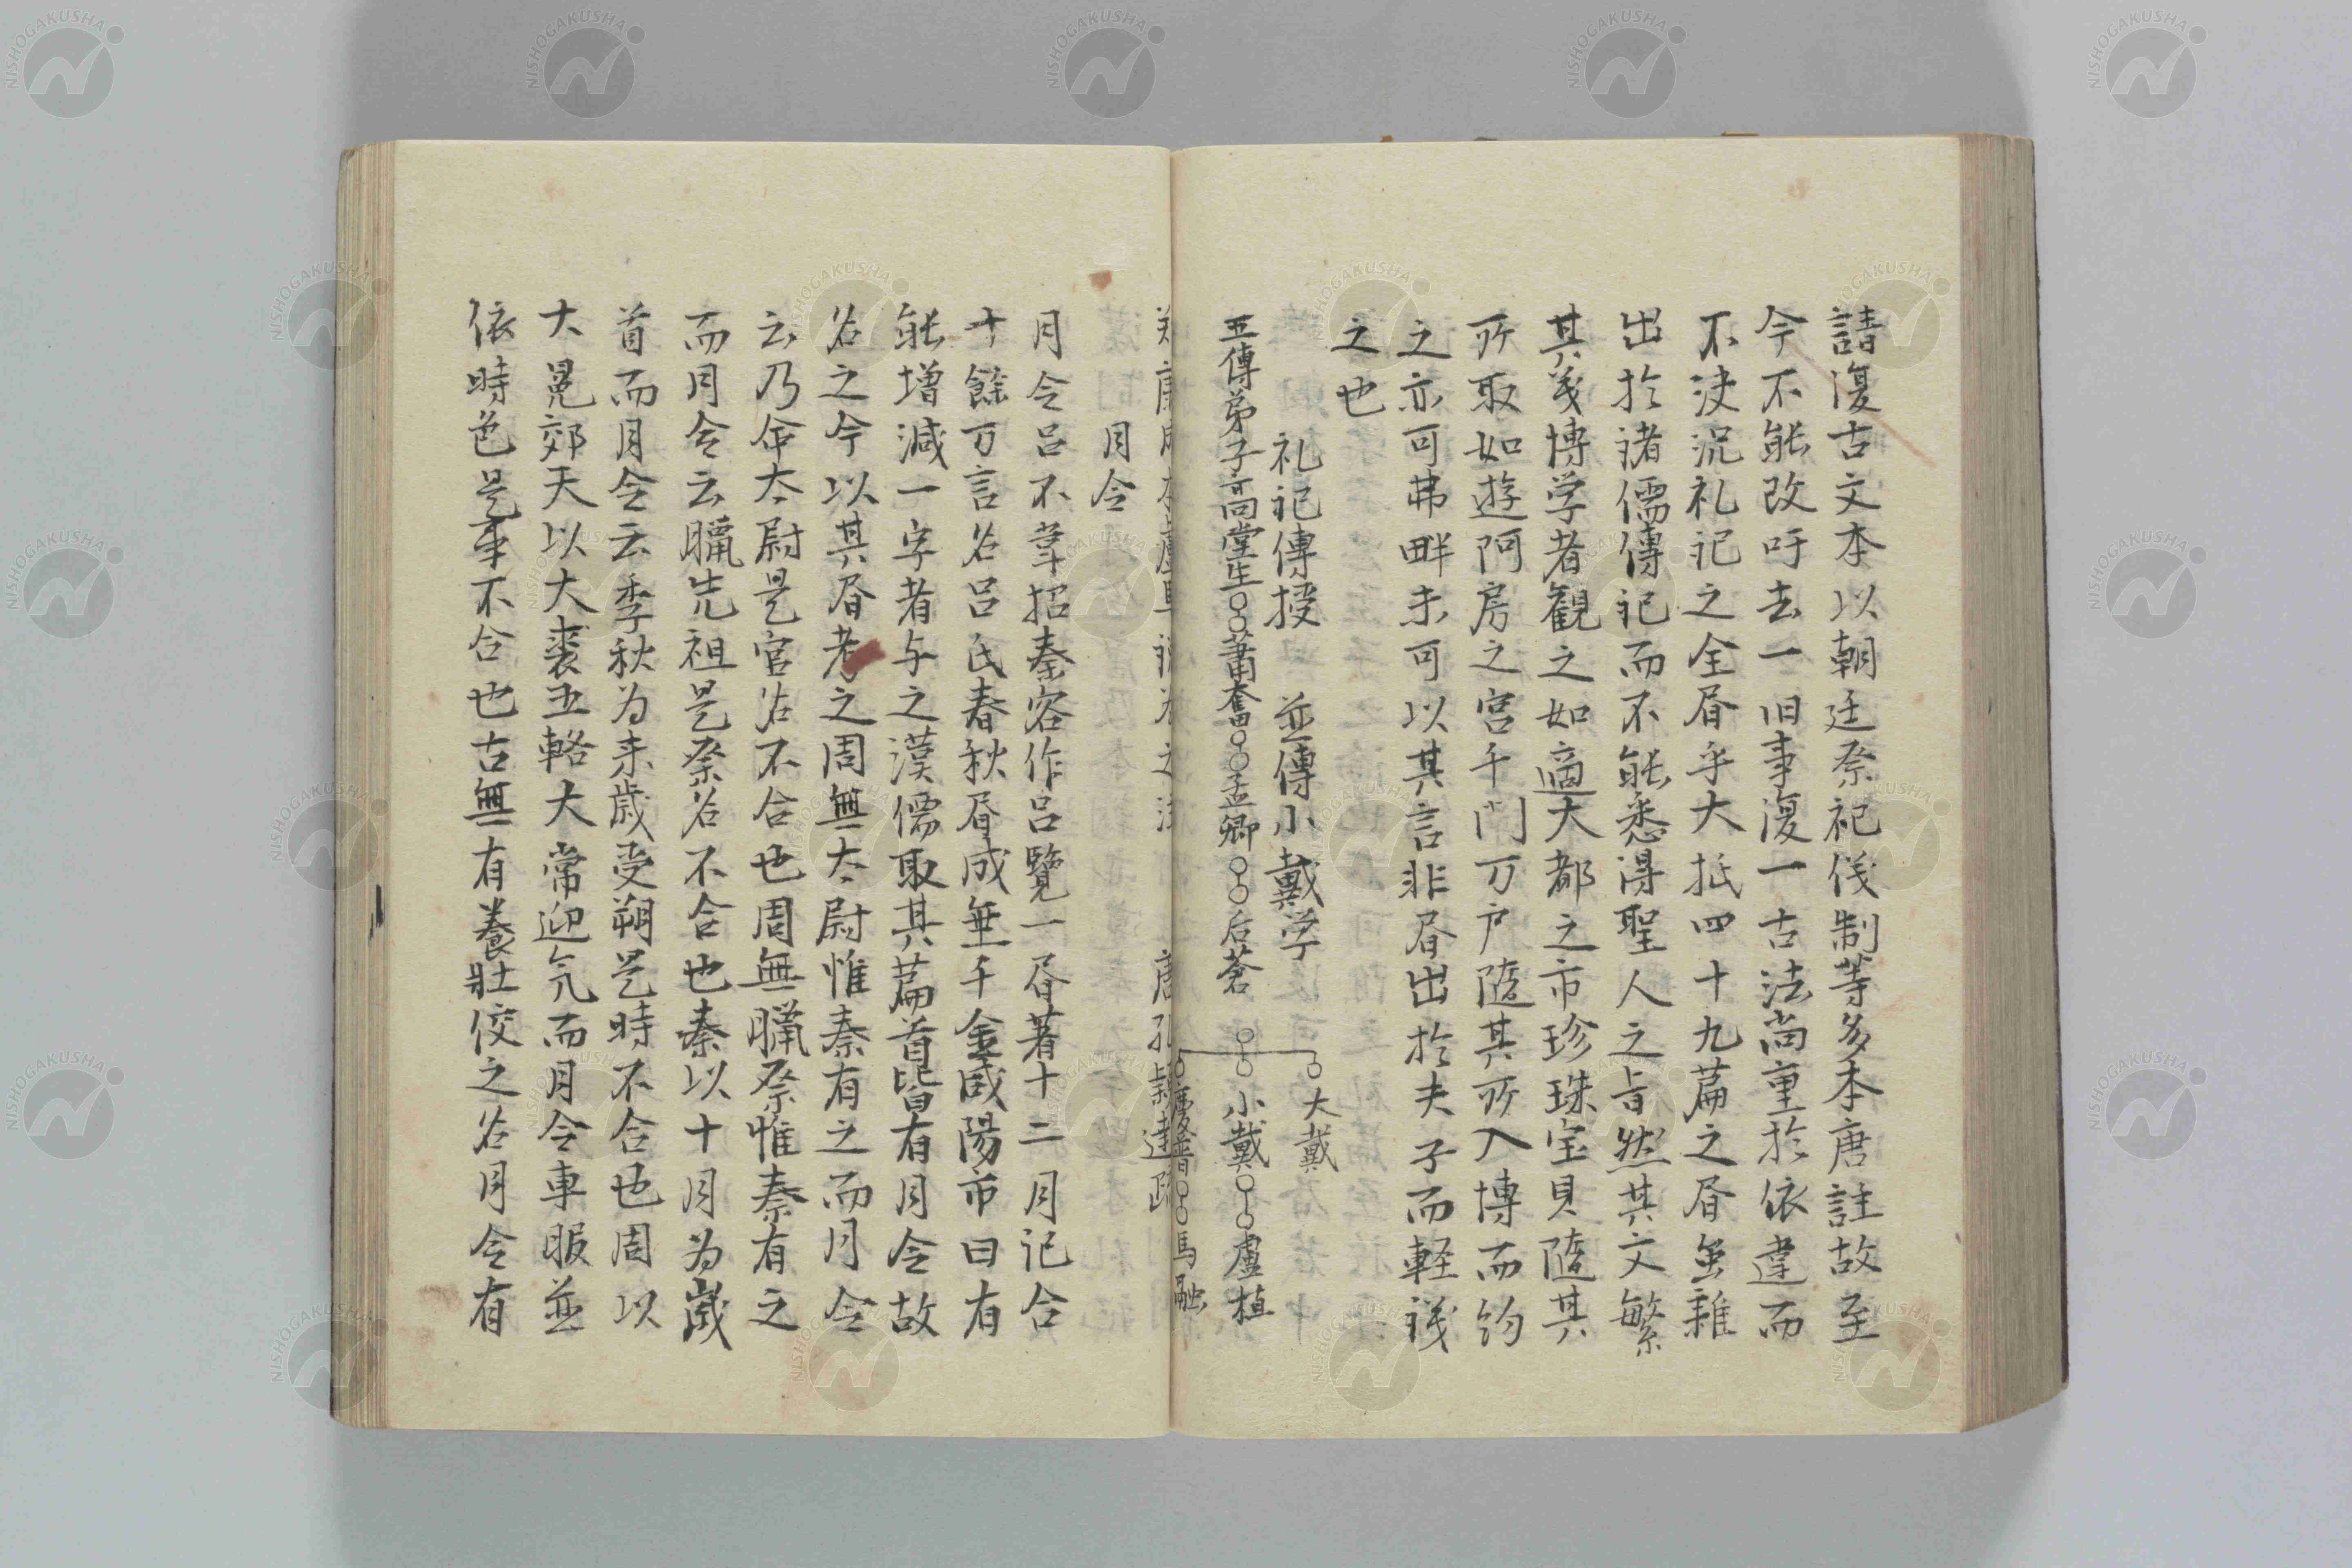 請復古文本以朝廷祭祀儀制等多本唐註故至
今不能改吁去一旧事復一古法尚重於依違而
不決況礼記之全書乎大抵四十九篇之書虽雜
出於諸儒傳記而不能悉得聖人之旨然其文繁
其義博学者観之如適大都之市珍珠宝貝隨其
所取如遊阿房之宮千門万户隨其所入博而約
之亦可弗畔未可以其言非書出於夫子而軽議
之也
礼記傳授 並傳小戴学
五傳弟子高堂生 蕭奮 孟卿 后蒼
大戴
小戴 盧植
慶普 馬融
唐孔穎達疏
月令
月令呂不韋招秦客作呂覽一書著十二月記合
十餘万言名呂氏春秋書成垂千金咸陽市曰有
能增減一字者与之漢儒取其篇首皆有月令故
名之今以其書考之周無太尉惟秦有之而月令
云乃命太尉是官名不合也周無臘祭惟秦有之
而月令云臘先祖是祭名不合也秦以十月为歲
首而月令云季秋为来歳受朔是時不合也周以
大冕郊天以大裘五輅大常迎气而月令車服並
依時色是事不合也古無有養壯佼之名月令有